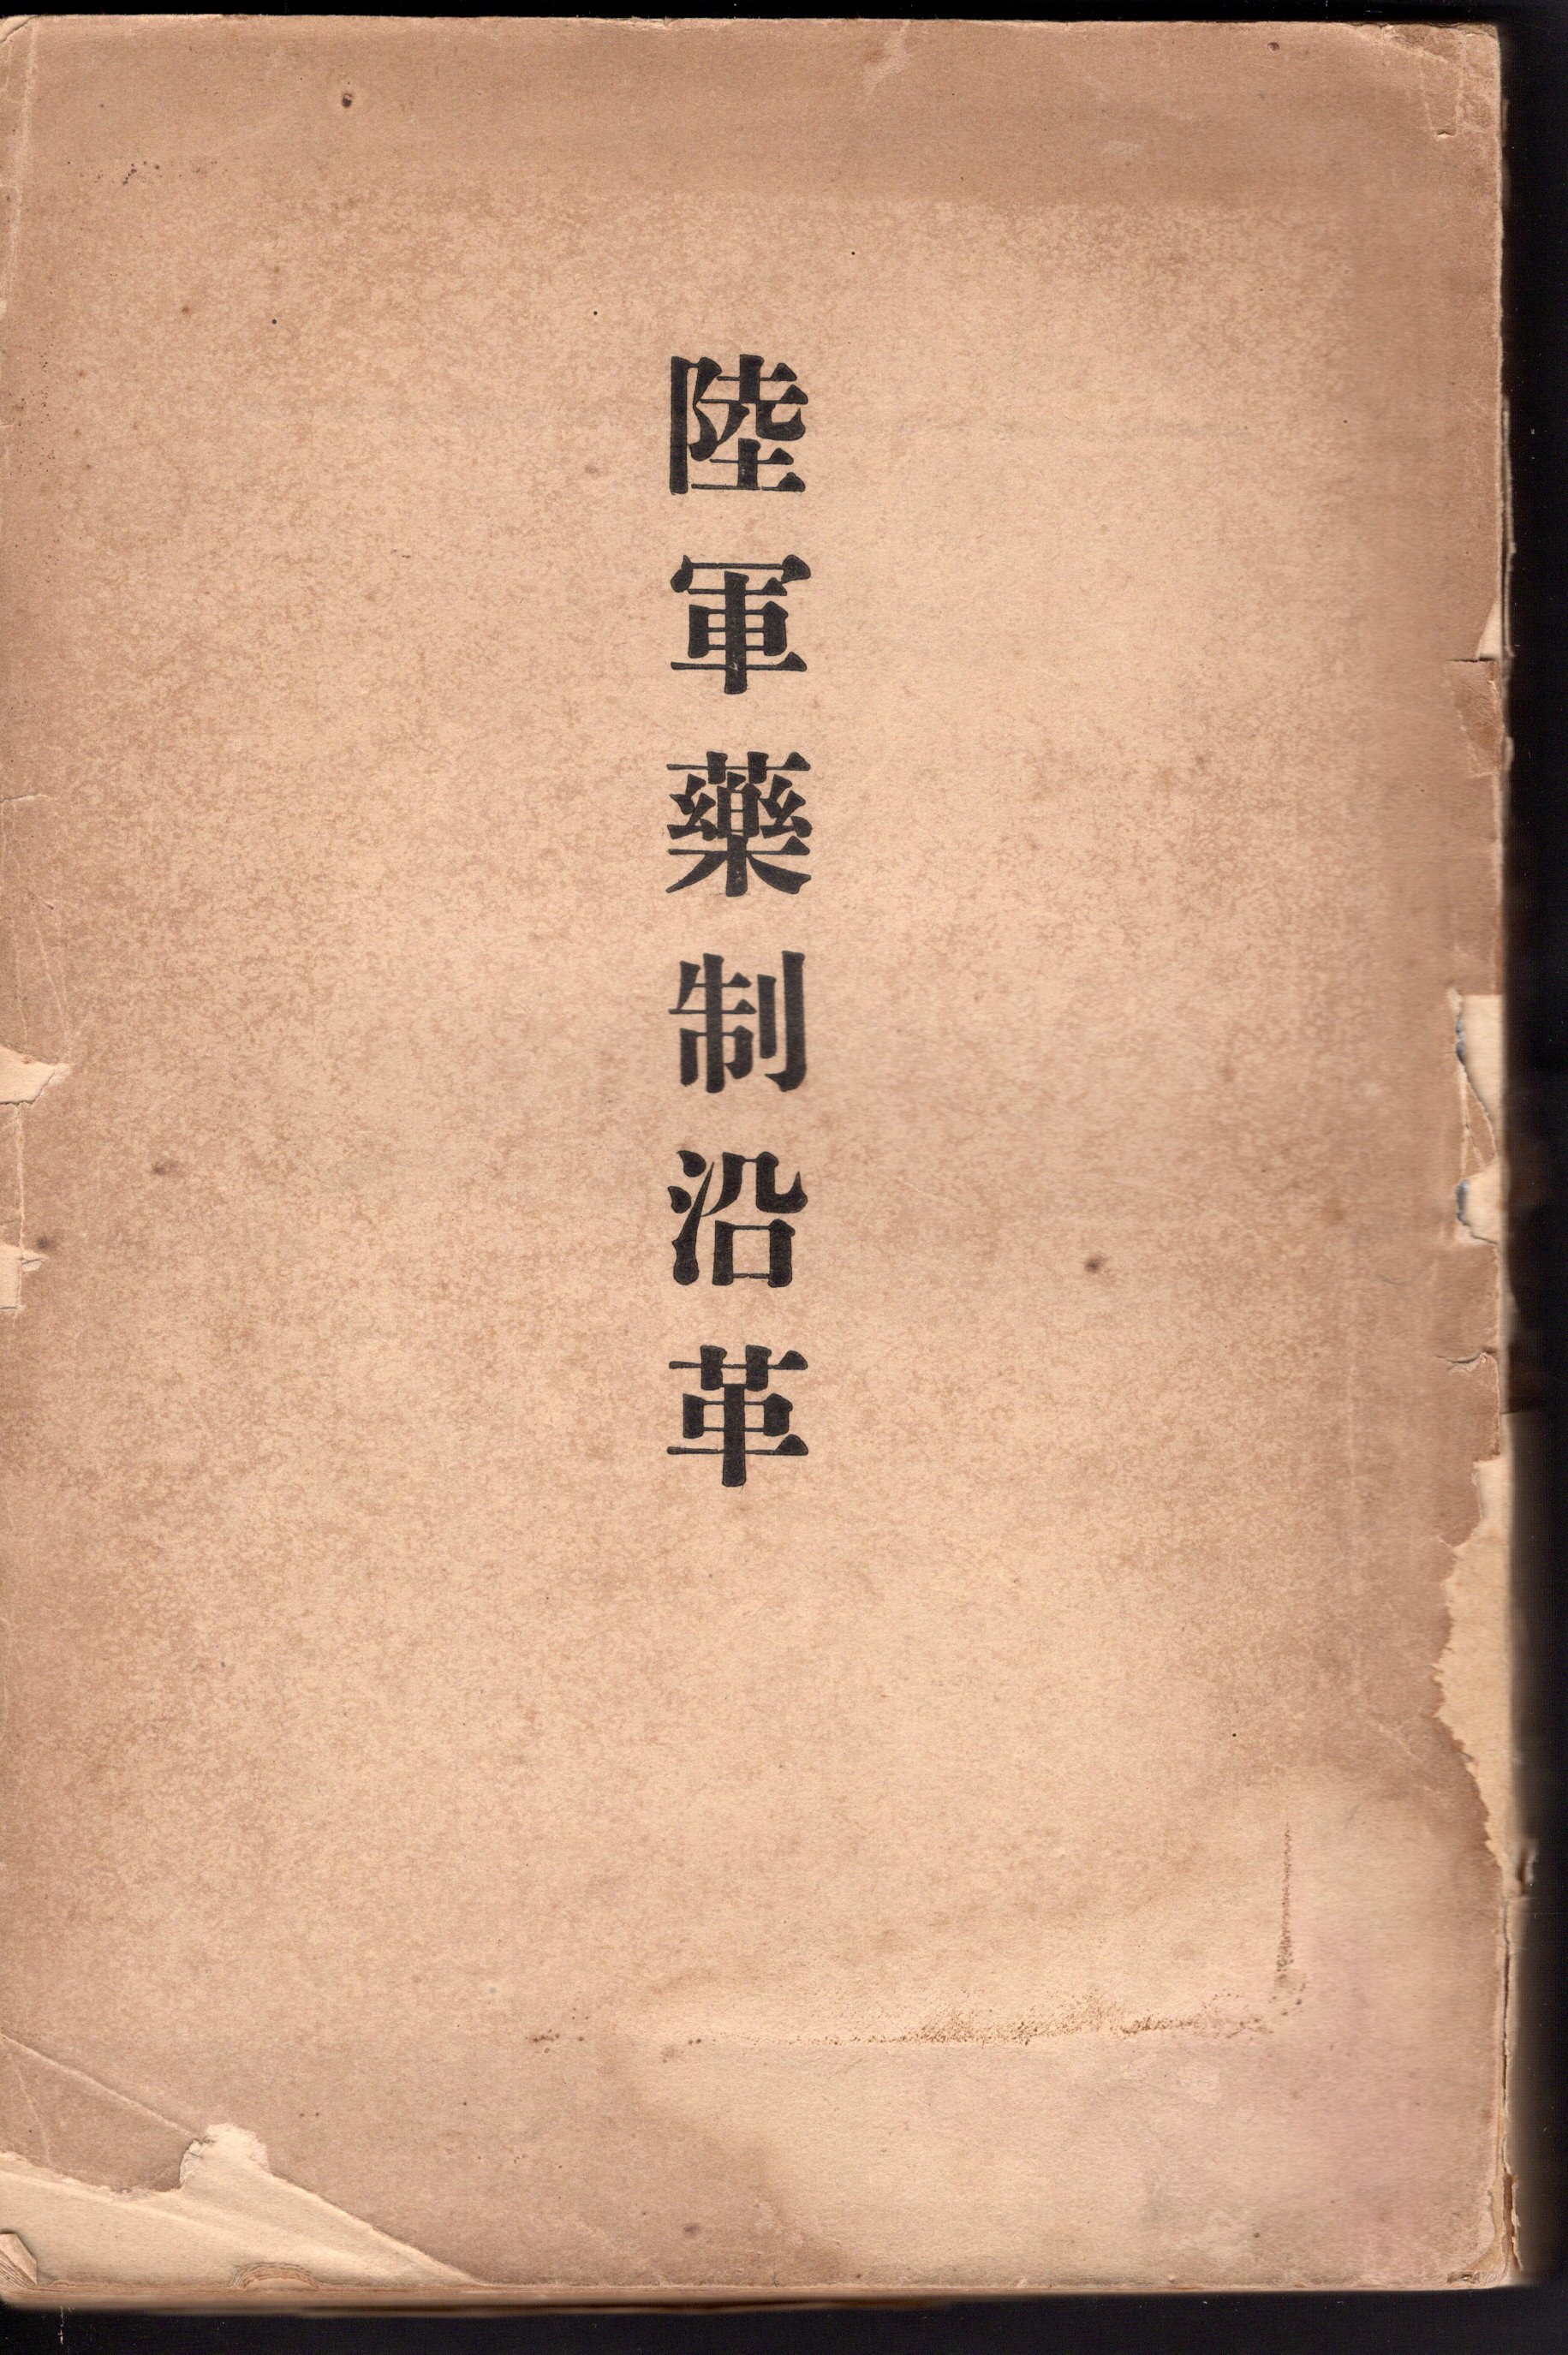 陸軍藥制沿革